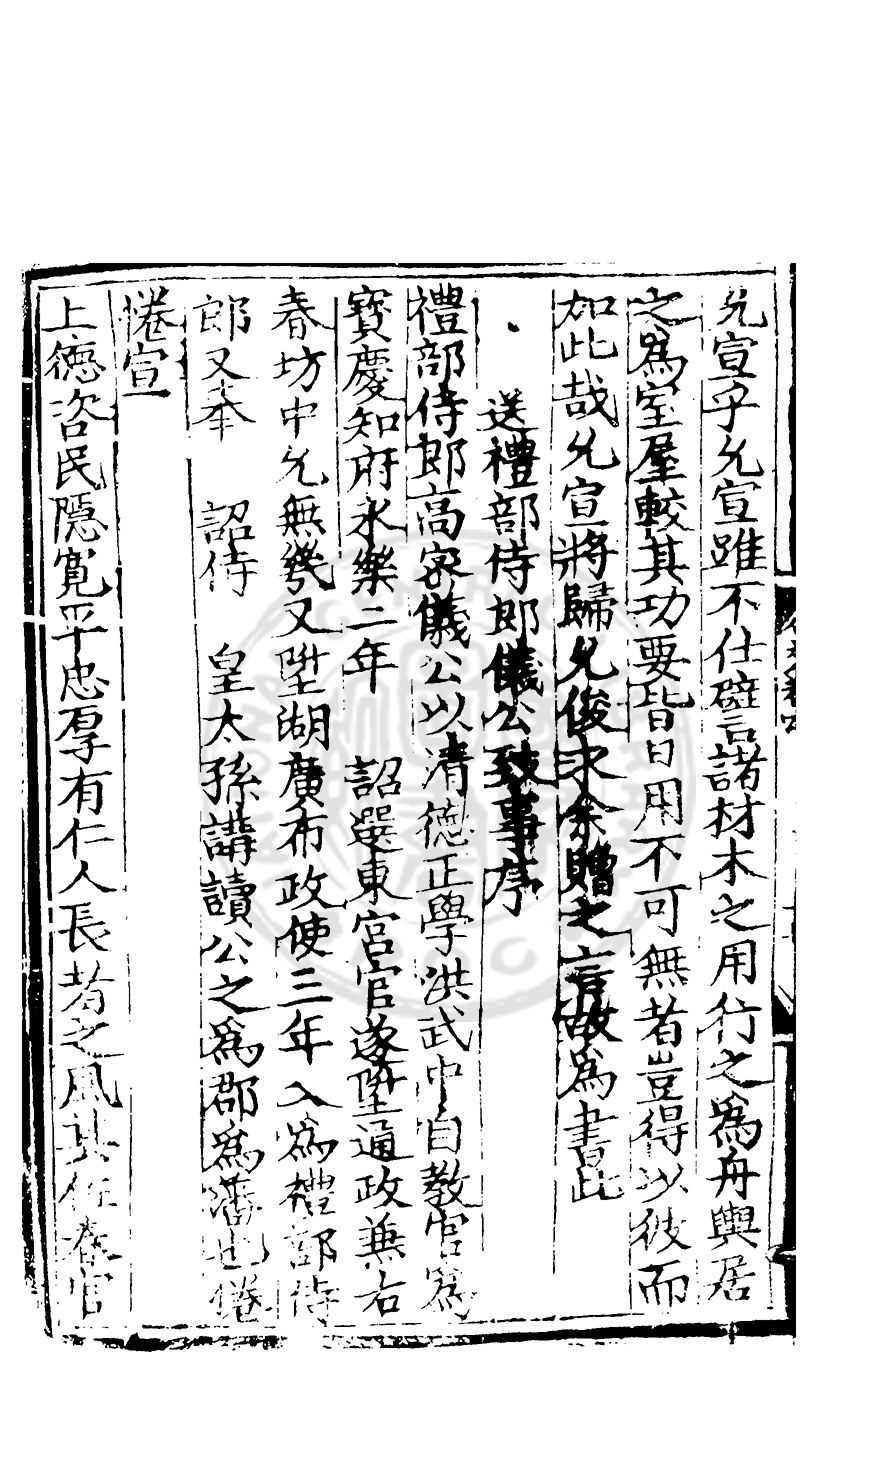 允宣乎允宣雖不仕譬諸材木之用行之為舟輿居
之為室屋較其功要皆日用不可無者豈得以彼而
加此哉允宣將歸允俊求余贈之言故為書此
送禮部侍郎儀公致事序
禮部侍郎高密儀公以清德正學洪武中自教官為
寶慶知府永樂二年 詔選東宮官遂陞通政兼右
春坊中允無幾又陞湖廣布政使三年入為禮部侍
郎又奉 詔侍 皇太孫講讀公之為郡為藩也惓
惓宣
上德咨民隱寬平忠厚有仁人長者之風其任春官